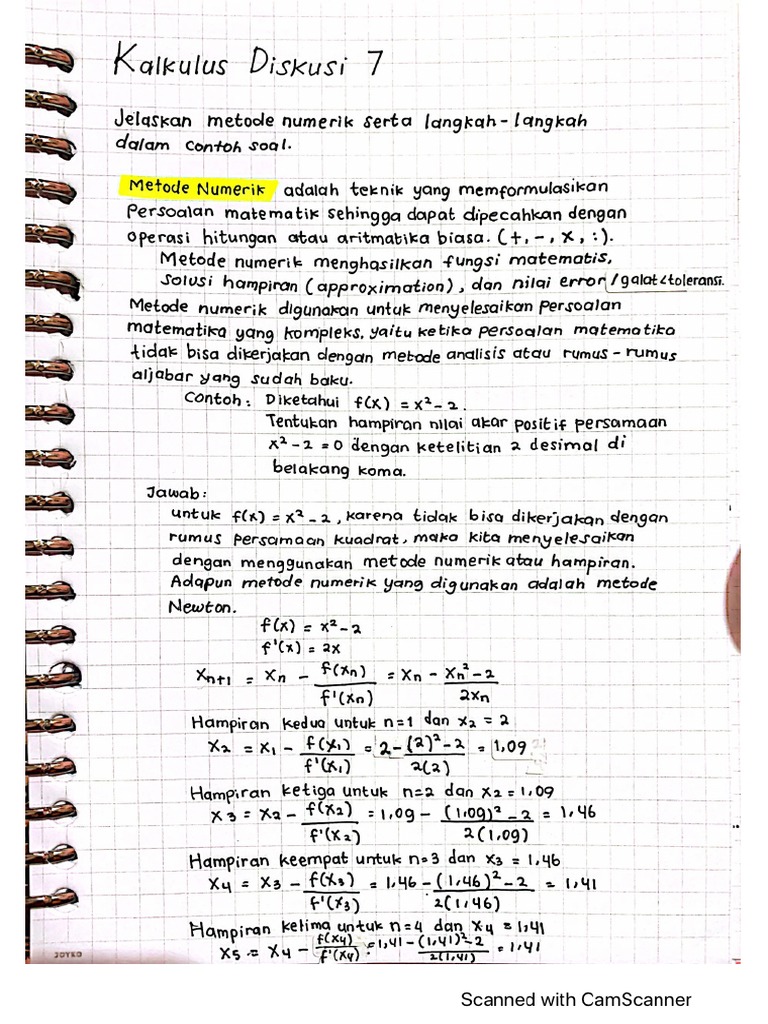 Kalkulus Diskusi 7
Jelaskan metode numerik serta langkah-langkah
dalam contoh soal.
Metode Numerik adalah teknik yang memformulasikan
Persoalan matematik sehingga dapat dipecahkan dengan
operasi hitungan atau aritmatika biasa. (+, -, x, :).
Metode numerik menghasilkan fungsi matematis,
solusi hampiran (approximation), dan nilai error/galat<toleransi.
Metode numerik digunakan untuk menyelesaikan Persoalan
matematika yang kompleks, yaitu ketika persoalan matematika
tidak bisa dikerjakan dengan metode analisis atau rumus-rumus
aljabar yang sudah baku.
Contoh: Diketahui f(x) = x² - 2.
Tentukan hampiran nilai akar positif persamaan
x² - 2 = 0 dengan ketelitian 2 desimal di
belakang koma.
Jawab:
untuk f(x) = x² - 2, karena tidak bisa dikerjakan dengan
rumus persamaan kuadrat, maka kita menyelesaikan
dengan menggunakan metode numerik atau hampiran.
Adapun metode numerik yang digunakan adalah metode
Newton.
f(x) = x² - 2
f'(x) = 2x
Xn+1 = Xn - f(xn)/f'(xn) = Xn - Xn² - 2/2xn
Hampiran kedua untuk n=1 dan x2 = 2
X2 = X1 - f(x1)/f'(x1) = 2 - (2)² - 2/2(2) = 1,09
Hampiran ketiga untuk n=2 dan X2 = 1,09
X3 = X2 - f(x2)/f'(x2) = 1,09 - (1,09)² - 2/2(1,09) = 1,46
Hampiran keempat untuk n=3 dan X3 = 1,46
X4 = X3 - f(X3)/f'(X3) = 1,46 - (1,46)² - 2/2(1,46) = 1,41
Hampiran kelima untuk n=4 dan X4 = 1,41
X5 = X4 - f(X4)/f'(X4) = 1,41 - (1,41)² - 2/2(1,41) = 1,41
JOYKO
Scanned with CamScanner